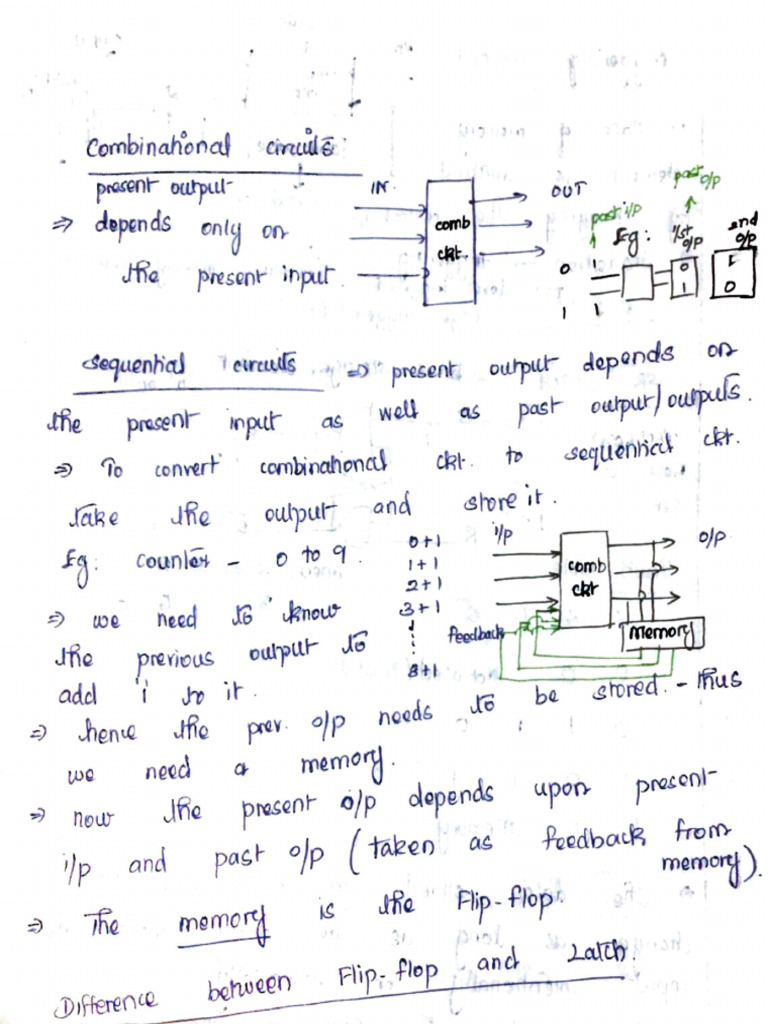 Combinational circuits
present output IN. OUT
⇒ depends only on
the present input
comb
ckt.
past i/p past o/p
Eg: 1st o/p 2nd o/p
0 1 0 1
1 1 1 0
sequential circuits ⇒ present output depends on
the present input as well as past output/outputs.
⇒ To convert combinational ckt. to sequential ckt.
take the output and store it.
Eg: counter - 0 to 9.
0+1
1+1
2+1
3+1
8+1
i/p o/p
comb
ckt
Memory
feedback
⇒ we need to know
the previous output to
add '1' to it.
⇒ hence the prev. o/p needs to be stored. - thus
we need a memory.
⇒ now the present o/p depends upon present
i/p and past o/p (taken as feedback from
memory).
⇒ The memory is the Flip-flop.
Difference between Flip-flop and Latch.